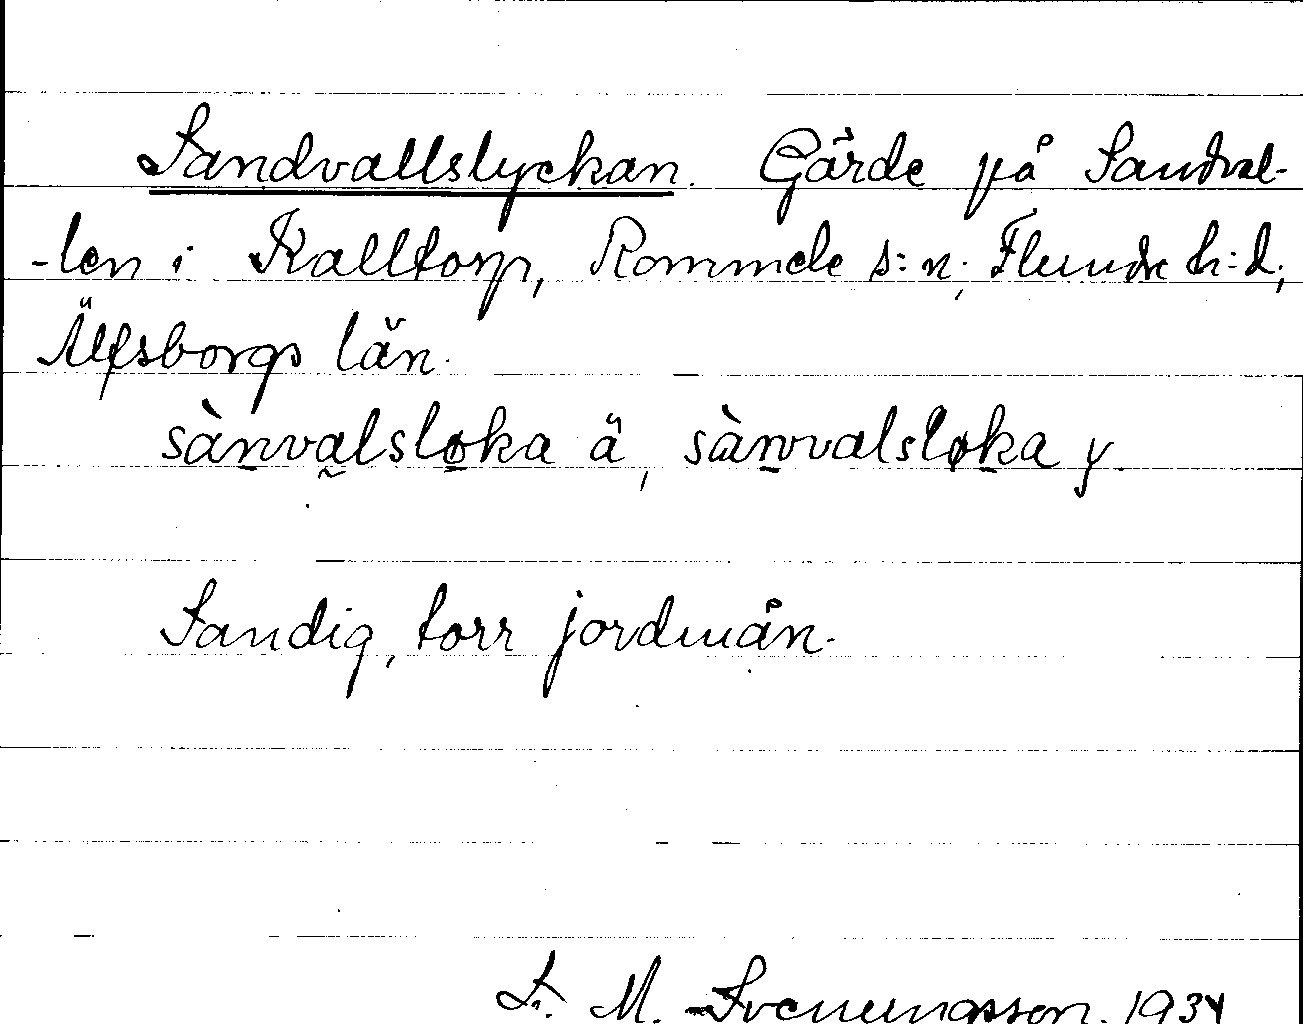 Sandvallslyckan. Gärde på Sandval-
-len i Kalltorp, Rommele s:n, Flundre h:d,
Älfsborgs län.
sànvalsløka ä, sànvalsløka y.
Sandig, torr jordmån.
F. M. Svenungsson. 1934